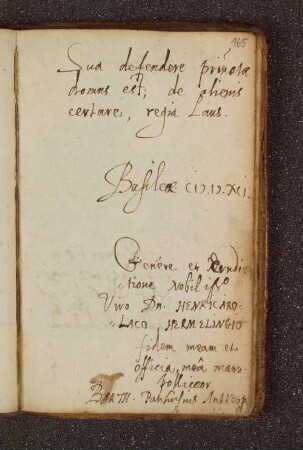 165
Sua defendere privatæ
domus est, de alienis
certare, regia Laus.
Basileæ CIƆ.IƆ.XCI.
Genere et Erudi-
tione Nobiliss.º
Viro Dn. HENR. CARO-
LACO, HERMELINGIO
fidem meam et
officia, meâ manu
polliceor
BARTH. Antverp.